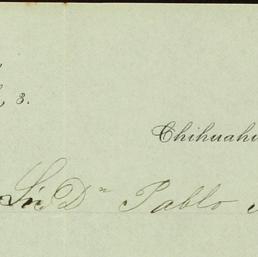 3.
Chihuahu
Sr. Dn Pablo